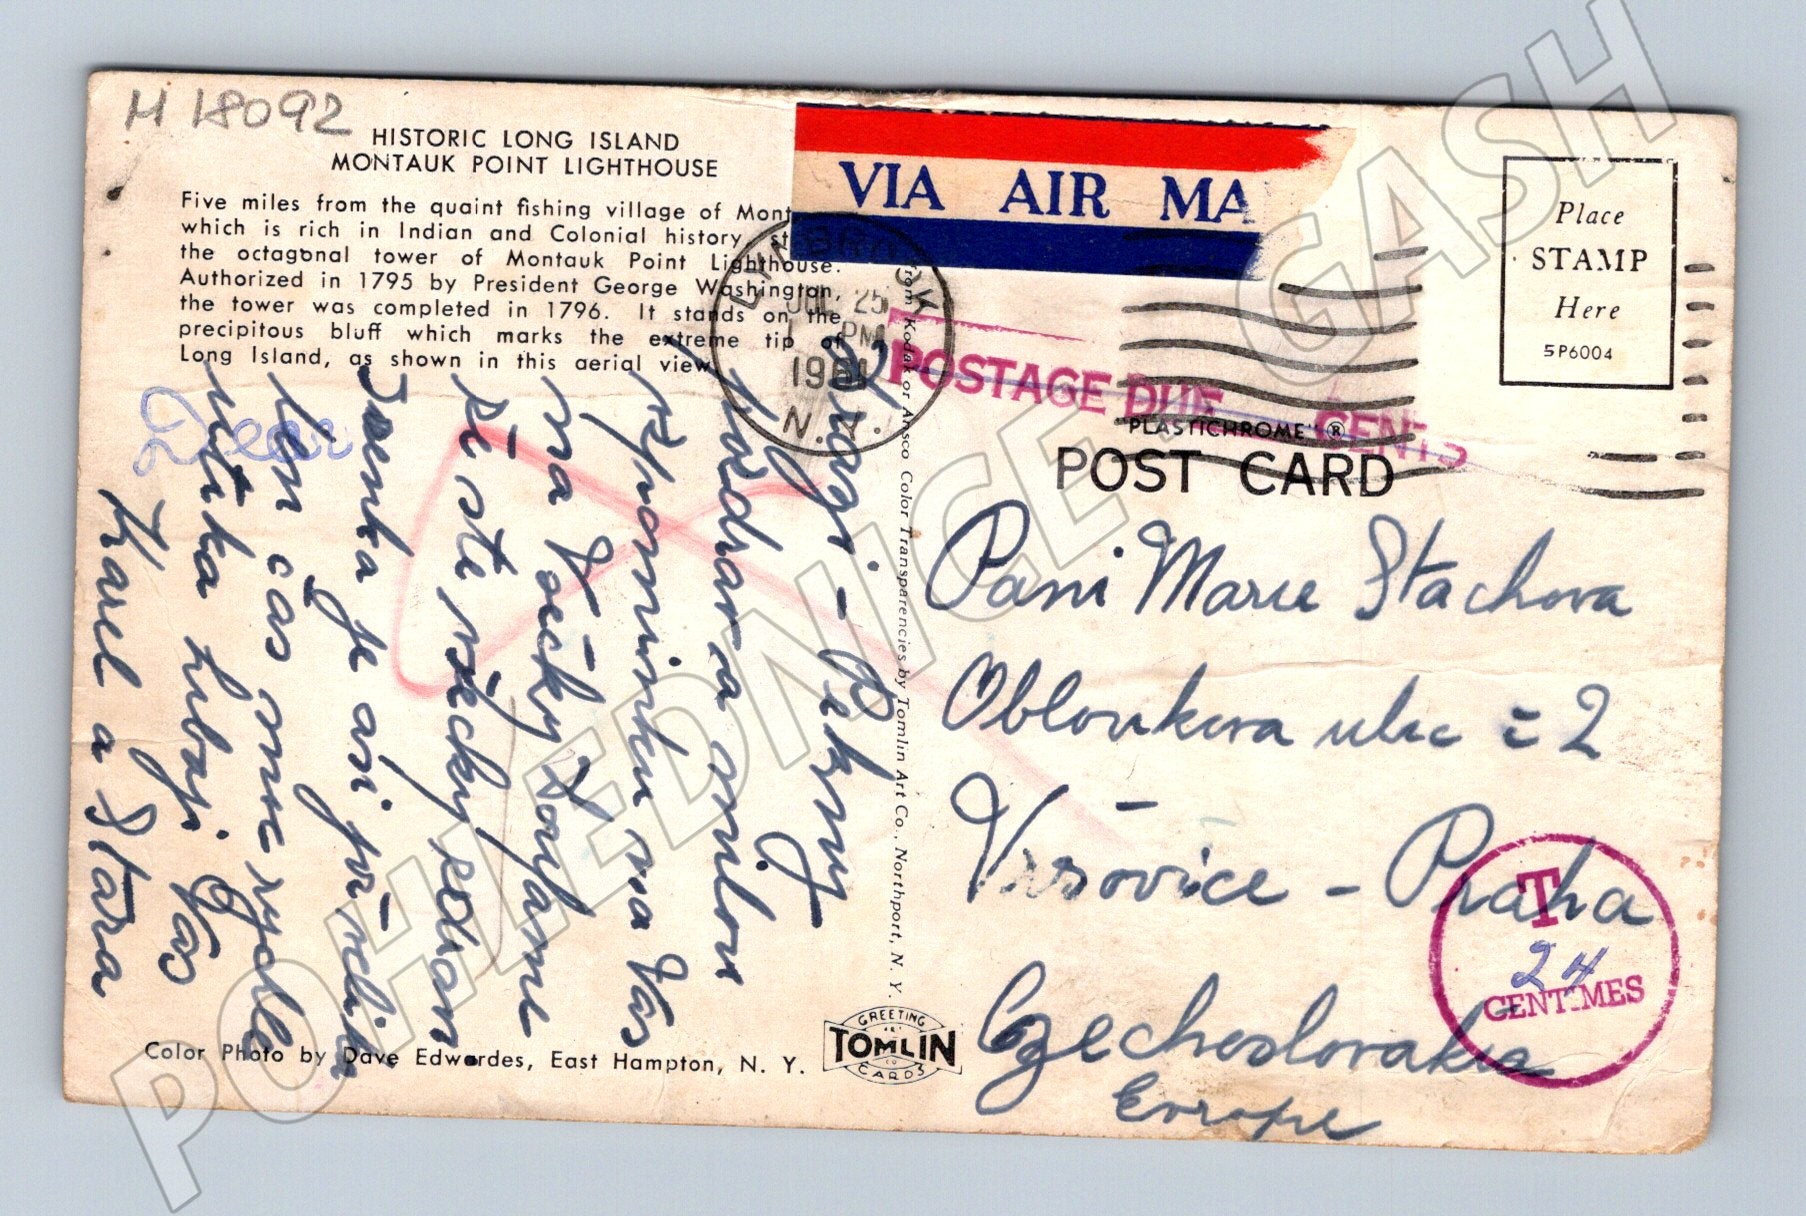 H 18092
HISTORIC LONG ISLAND
MONTAUK POINT LIGHTHOUSE
Five miles from the quaint fishing village of Mont
which is rich in Indian and Colonial history, st
the octagonal tower of Montauk Point Lighthouse.
Authorized in 1795 by President George Washington,
the tower was completed in 1796. It stands on the
precipitous bluff which marks the extreme tip of
Long Island, as shown in this aerial view.
VIA AIR MA
LYNBROOK
JUL 25
PM
1961
N.Y.
POSTAGE DUE CENTS
Place
STAMP
Here
5P6004
PLASTICHROME ®
POST CARD
Drazí - Pekny
pozdrav a
vzpominku na Vas
na Všecky Doufame
že ste všecky
Jenka je asi
čas
hubaji Vas
Karel a Stara
Dear
from Kodak or Ansco Color Transparencies by Tomlin Art Co., Northport, N. Y.
Pani Marie Stachova
Obloukova ulic č 2
Vršovice - Praha
Czechoslovakia
Europe
T
24
CENTIMES
Color Photo by Dave Edwardes, East Hampton, N. Y.
GREETING
ART
TOMLIN
CO
CARDS
POHLEDNICE - GASH